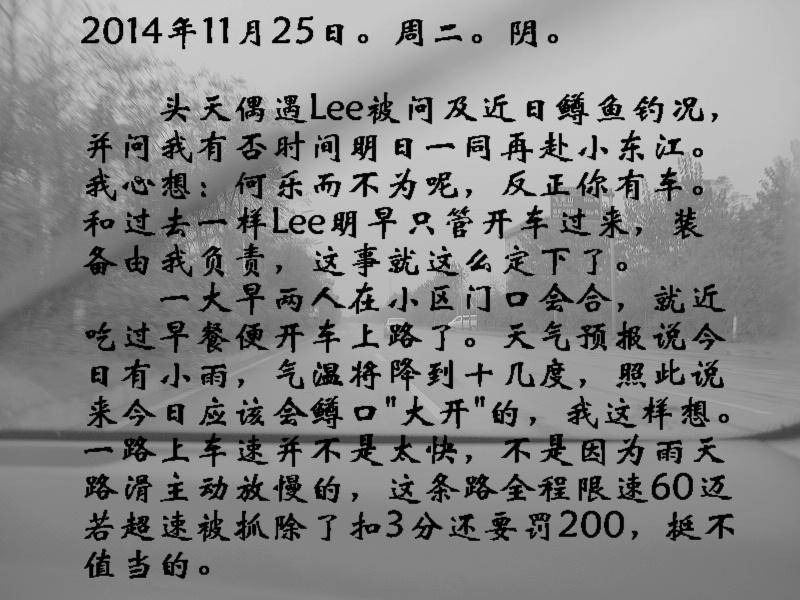 2014年11月25日。周二。阴。
头天偶遇Lee被问及近日鳟鱼钓况，
并问我有否时间明日一同再赴小东江。
我心想：何乐而不为呢，反正你有车。
和过去一样Lee明早只管开车过来，装
备由我负责，这事就这么定下了。
一大早两人在小区门口会合，就近
吃过早餐便开车上路了。天气预报说今
日有小雨，气温将降到十几度，照此说
来今日应该会鳟口"大开"的，我这样想。
一路上车速并不是太快，不是因为雨天
路滑主动放慢的，这条路全程限速60迈
若超速被抓除了扣3分还要罚200，挺不
值当的。